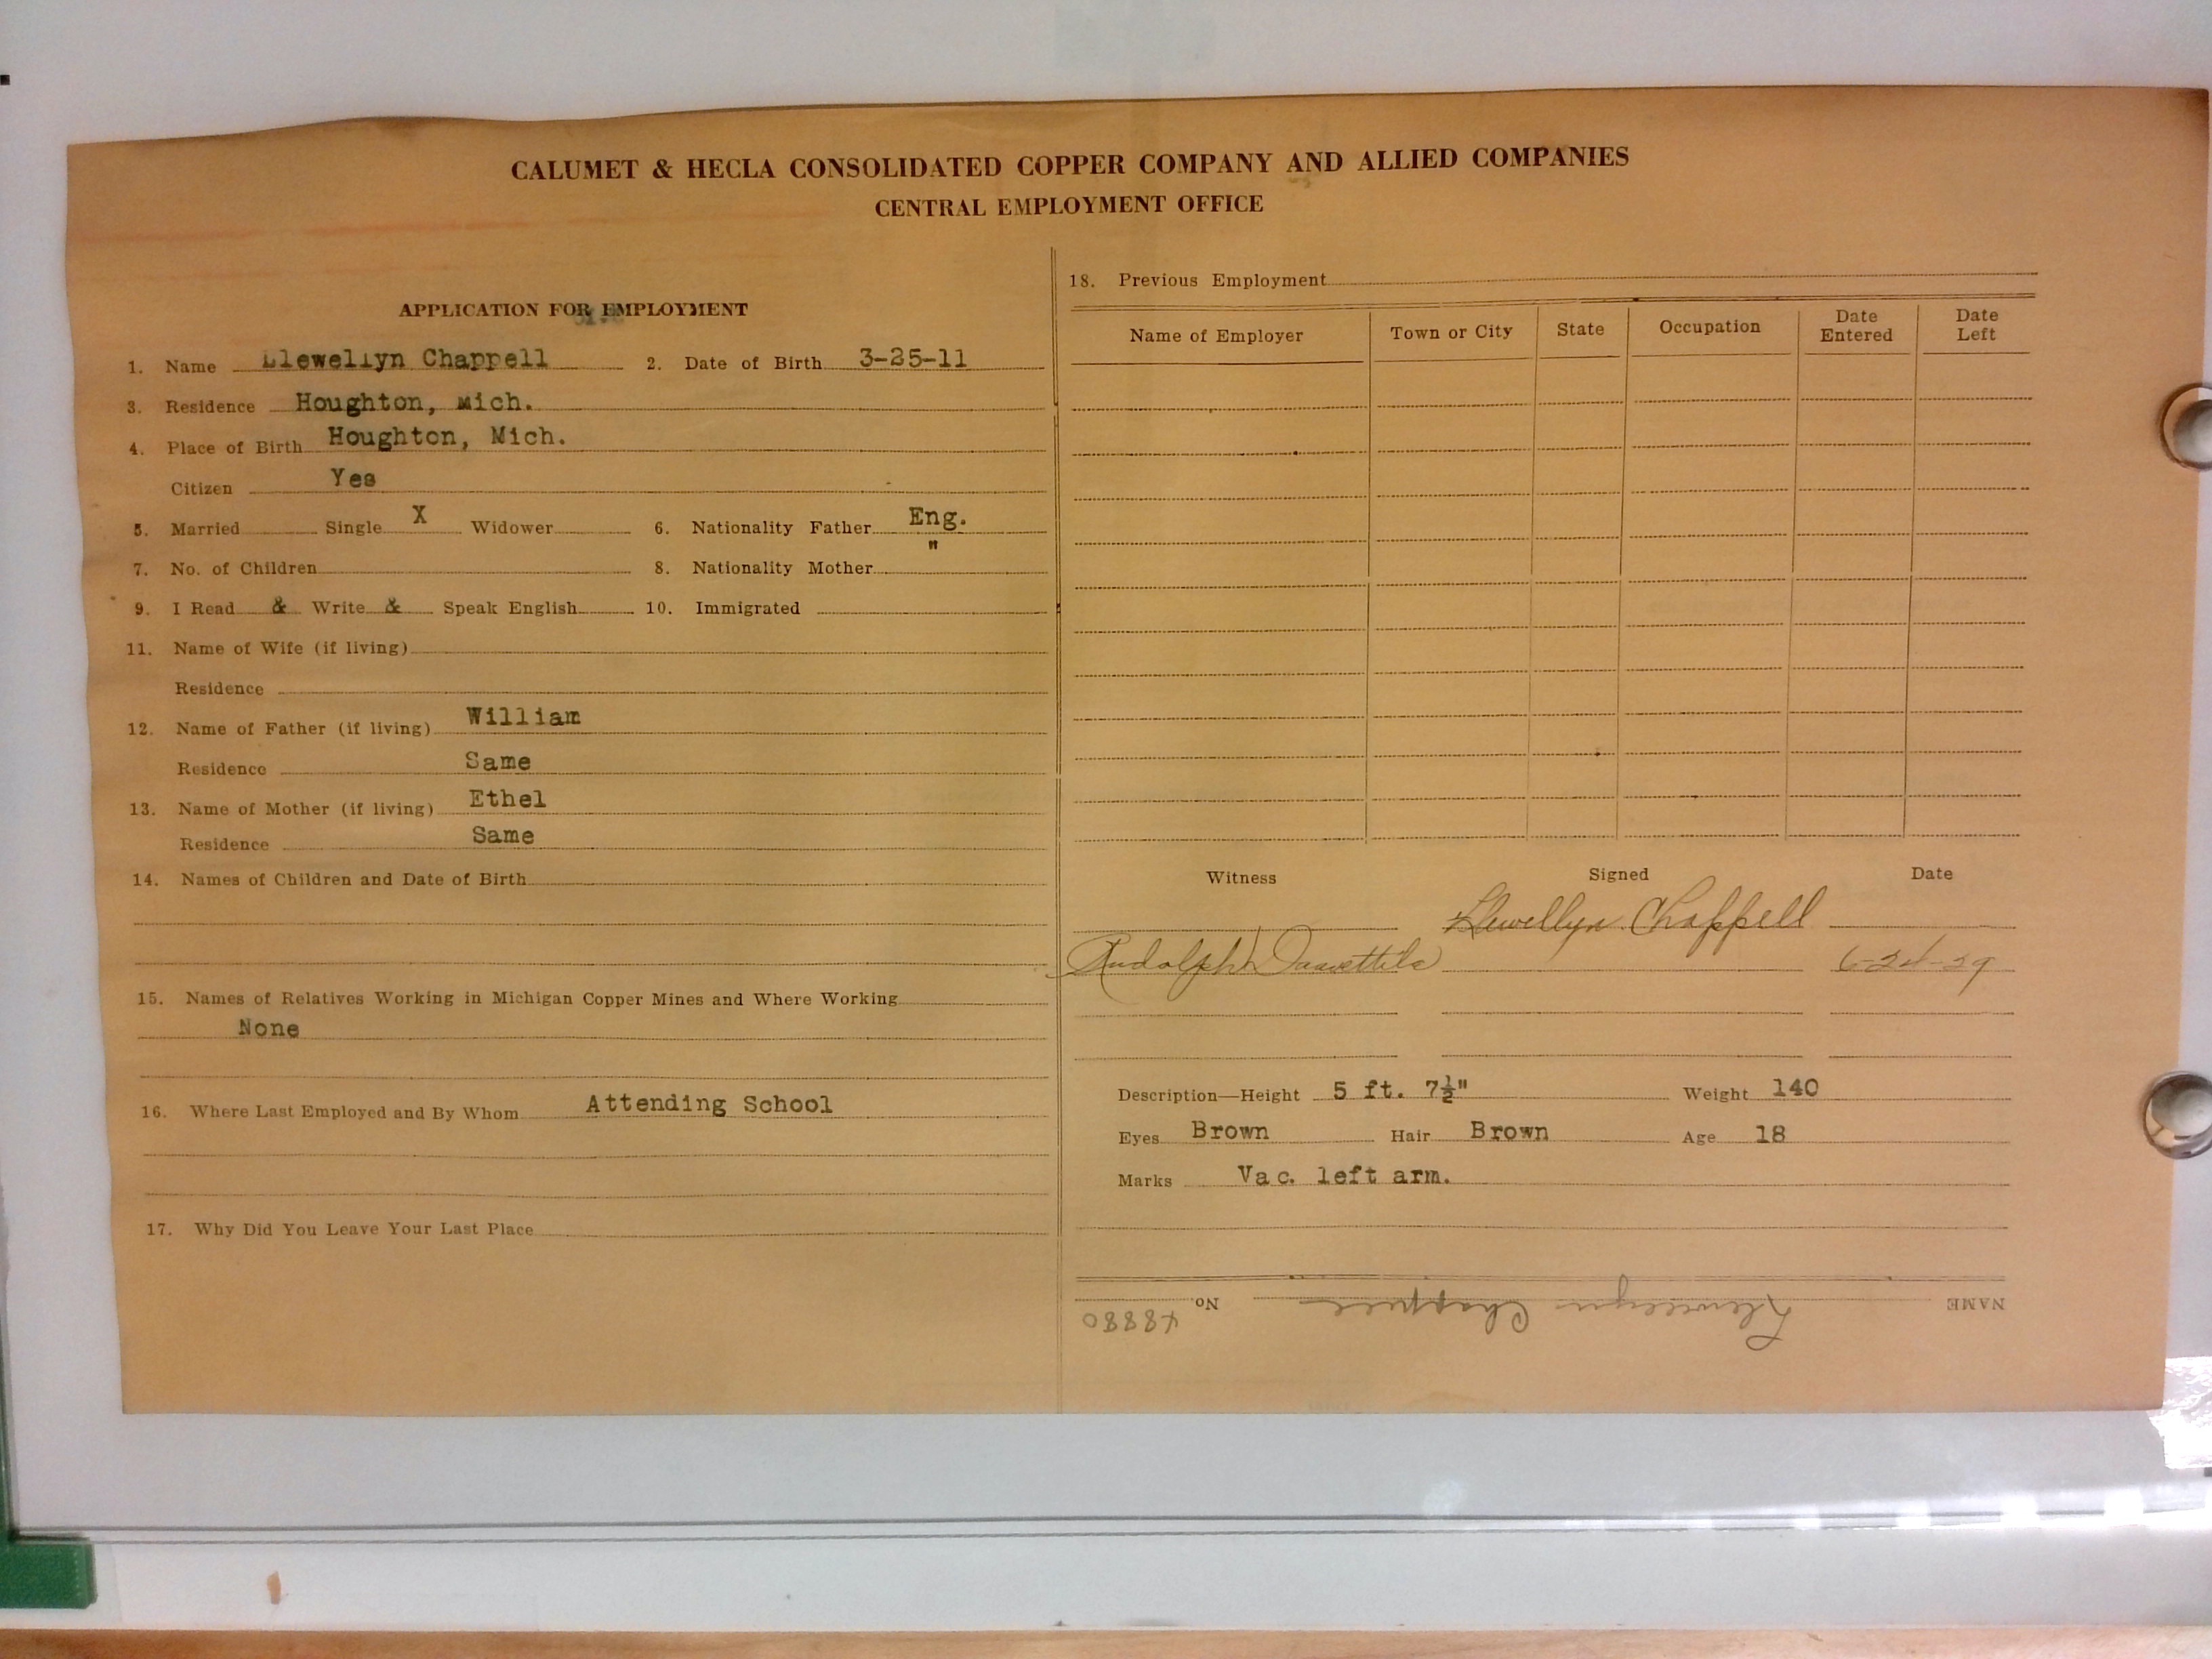 CALUMET & HECLA CONSOLIDATED COPPER COMPANY AND ALLIED COMPANIES
CENTRAL EMPLOYMENT OFFICE
APPLICATION FOR EMPLOYMENT
1. Name Llewellyn Chappell 2. Date of Birth 3-25-11
3. Residence Houghton, Mich.
4. Place of Birth Houghton, Mich.
Citizen Yes
5. Married Single X Widower 6. Nationality Father Eng.
7. No. of Children 8. Nationality Mother "
9. I Read & Write & Speak English 10. Immigrated
11. Name of Wife (if living)
Residence
12. Name of Father (if living) William
Residence Same
13. Name of Mother (if living) Ethel
Residence Same
14. Names of Children and Date of Birth
15. Names of Relatives Working in Michigan Copper Mines and Where Working
None
16. Where Last Employed and By Whom Attending School
17. Why Did You Leave Your Last Place
18. Previous Employment
Name of Employer Town or City State Occupation Date Entered Date Left
Witness Signed Date
Llewellyn Chappell
Rudolph 6-24-29
Description—Height 5 ft. 7½" Weight 140
Eyes Brown Hair Brown Age 18
Marks Vac. left arm.
NAME Llewellyn Chappell No. 48880